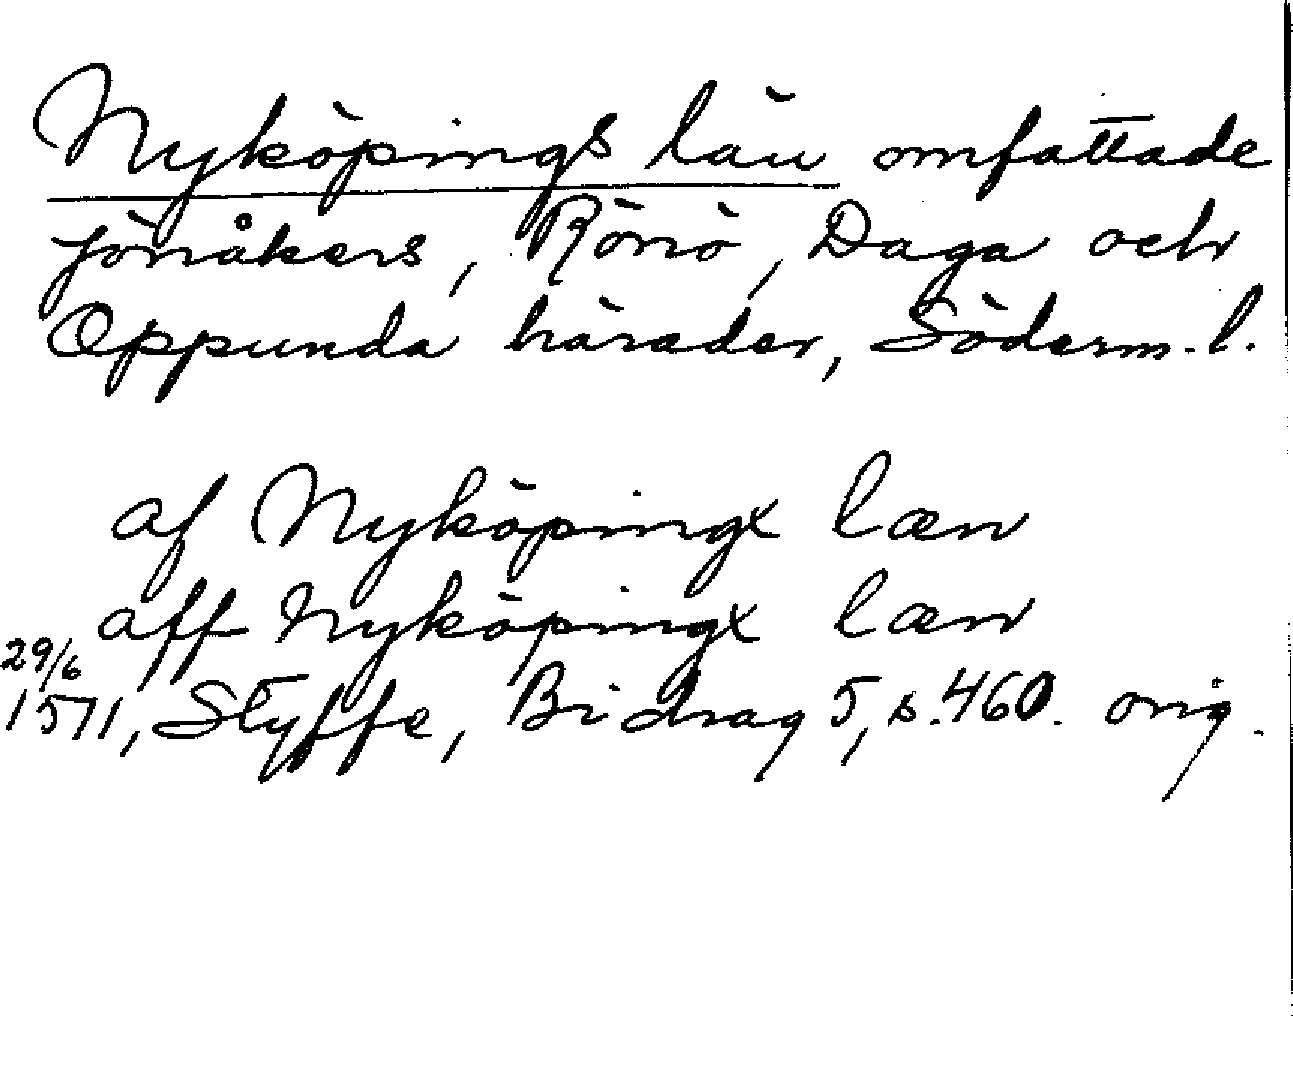 Nyköpings län omfattade
Jönåkers, Rönö, Daga och
Oppunda härader, Söderm. l.
af Nyköpingx læn
aff Nyköpingx læn
29/6
1511, Styffe, Bidrag 5, s. 460. orig.